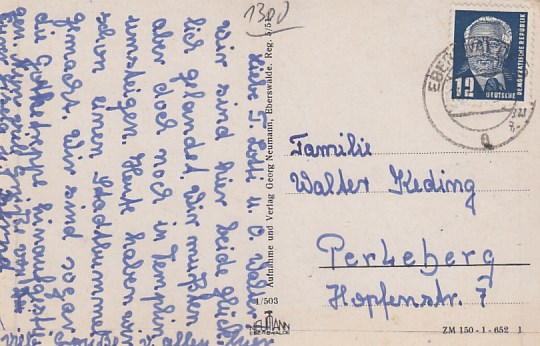 1300
Liebe T. Edit. u. O. Walter
wir sind hier beide glück-
lich gelandet. Wir mußten
aber doch noch in Templin
umsteigen. Heute haben wir
schon einen Stadtbummel
gemacht. Wir sind sogar
die hinaufgestie-
gen. viele Grüße von
viel Grüße v. allen
Aufnahme und Verlag Georg Neumann, Eberswalde. Reg. 5/5
1/503
NEUMANN
EBERSWALDE
12
DEUTSCHE
DEMOKRATISCHE REPUBLIK
EBERS
Familie
Walter Keding
Perleberg
Hopfenstr. 7
ZM 150 - 1 - 652 1